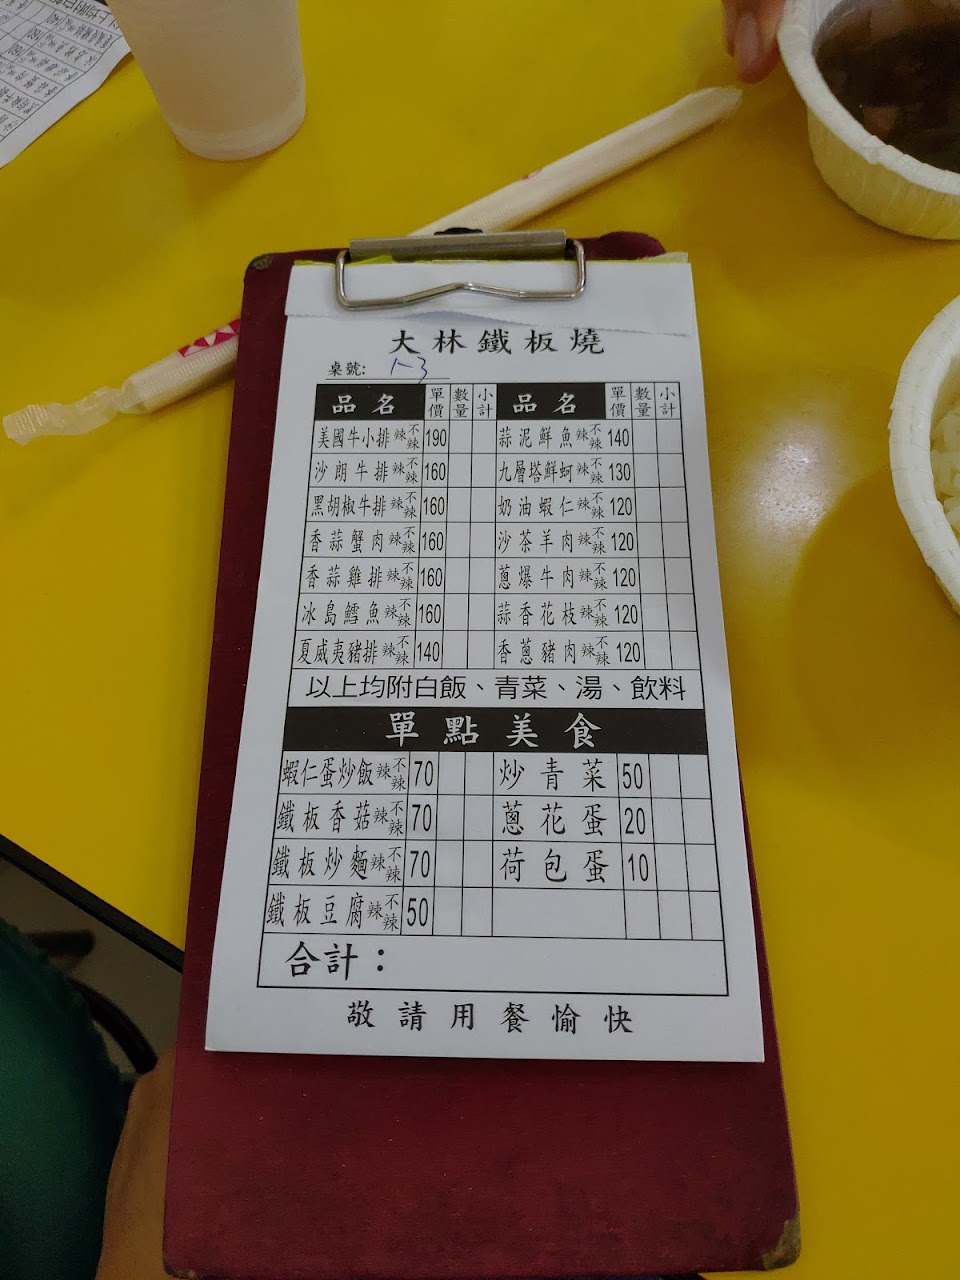 大林鐵板燒
桌號: 1-3
品名 單價 數量 小計 品名 單價 數量 小計
美國牛小排 辣 不辣 190 蒜泥鮮魚 辣 不辣 140
沙朗牛排 辣 不辣 160 九層塔鮮蚵 辣 不辣 130
黑胡椒牛排 辣 不辣 160 奶油蝦仁 辣 不辣 120
香蒜蟹肉 辣 不辣 160 沙茶羊肉 辣 不辣 120
香蒜雞排 辣 不辣 160 蔥爆牛肉 辣 不辣 120
冰島鱈魚 辣 不辣 160 蒜香花枝 辣 不辣 120
夏威夷豬排 辣 不辣 140 香蔥豬肉 辣 不辣 120
以上均附白飯、青菜、湯、飲料
單點美食
蝦仁蛋炒飯 辣 不辣 70 炒青菜 50
鐵板香菇 辣 不辣 70 蔥花蛋 20
鐵板炒麵 辣 不辣 70 荷包蛋 10
鐵板豆腐 辣 不辣 50
合計：
敬請用餐愉快